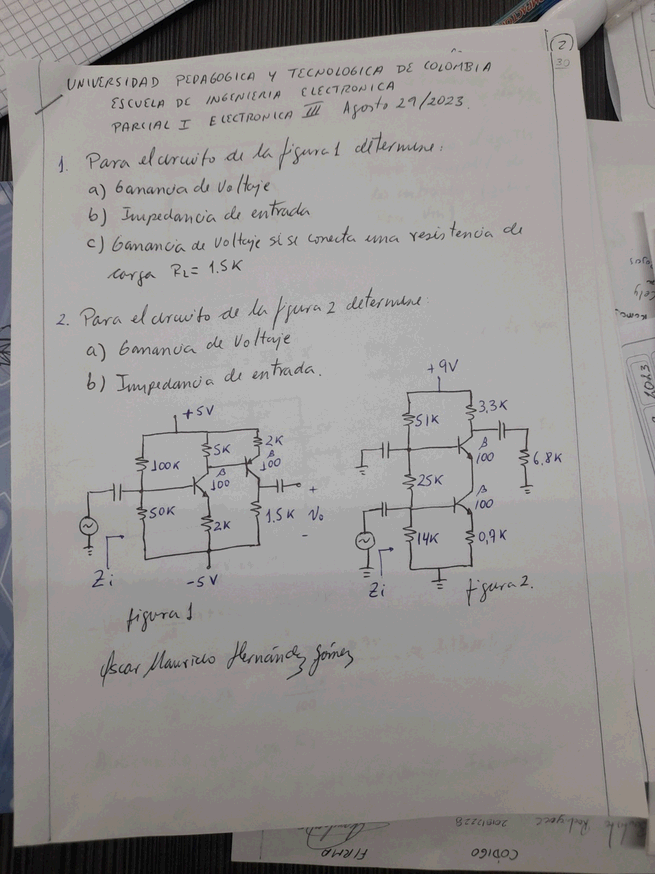 (2)
30
UNIVERSIDAD PEDAGOGICA Y TECNOLOGICA DE COLOMBIA
ESCUELA DE INGENIERIA ELECTRONICA
PARCIAL I ELECTRONICA III Agosto 29/2023.
1. Para el circuito de la figura 1 determine:
a) Ganancia de Voltaje
b) Impedancia de entrada
c) Ganancia de Voltaje si se conecta una resistencia de
carga RL = 1.5K
2. Para el circuito de la figura 2 determine:
a) Ganancia de Voltaje
b) Impedancia de entrada.
+5V
100K
5K
2K
β
100
β
100
50K
2K
1.5K
+
Vo
-
Zi
-5V
figura 1
+9V
51K
3,3K
β
100
6,8K
25K
β
100
14K
0,9K
Zi
figura 2.
Oscar Mauricio Hernández Gómez
CODIGO
FIRMA